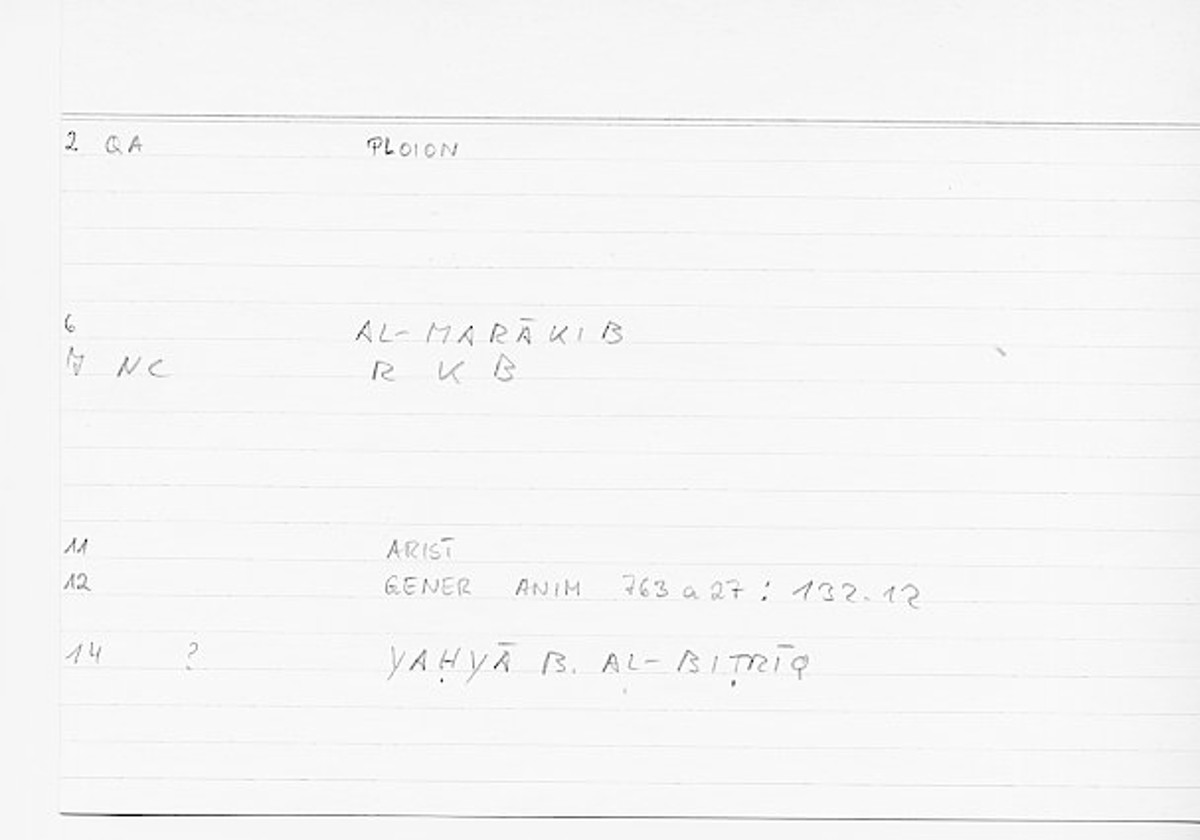 2 QA PLOION
6 AL-MARĀKIB
7 NC R K B
11 ARIST
12 GENER ANIM 763 a 27 : 132.12
14 ? YAḤYĀ B. AL-BIṬRĪQ